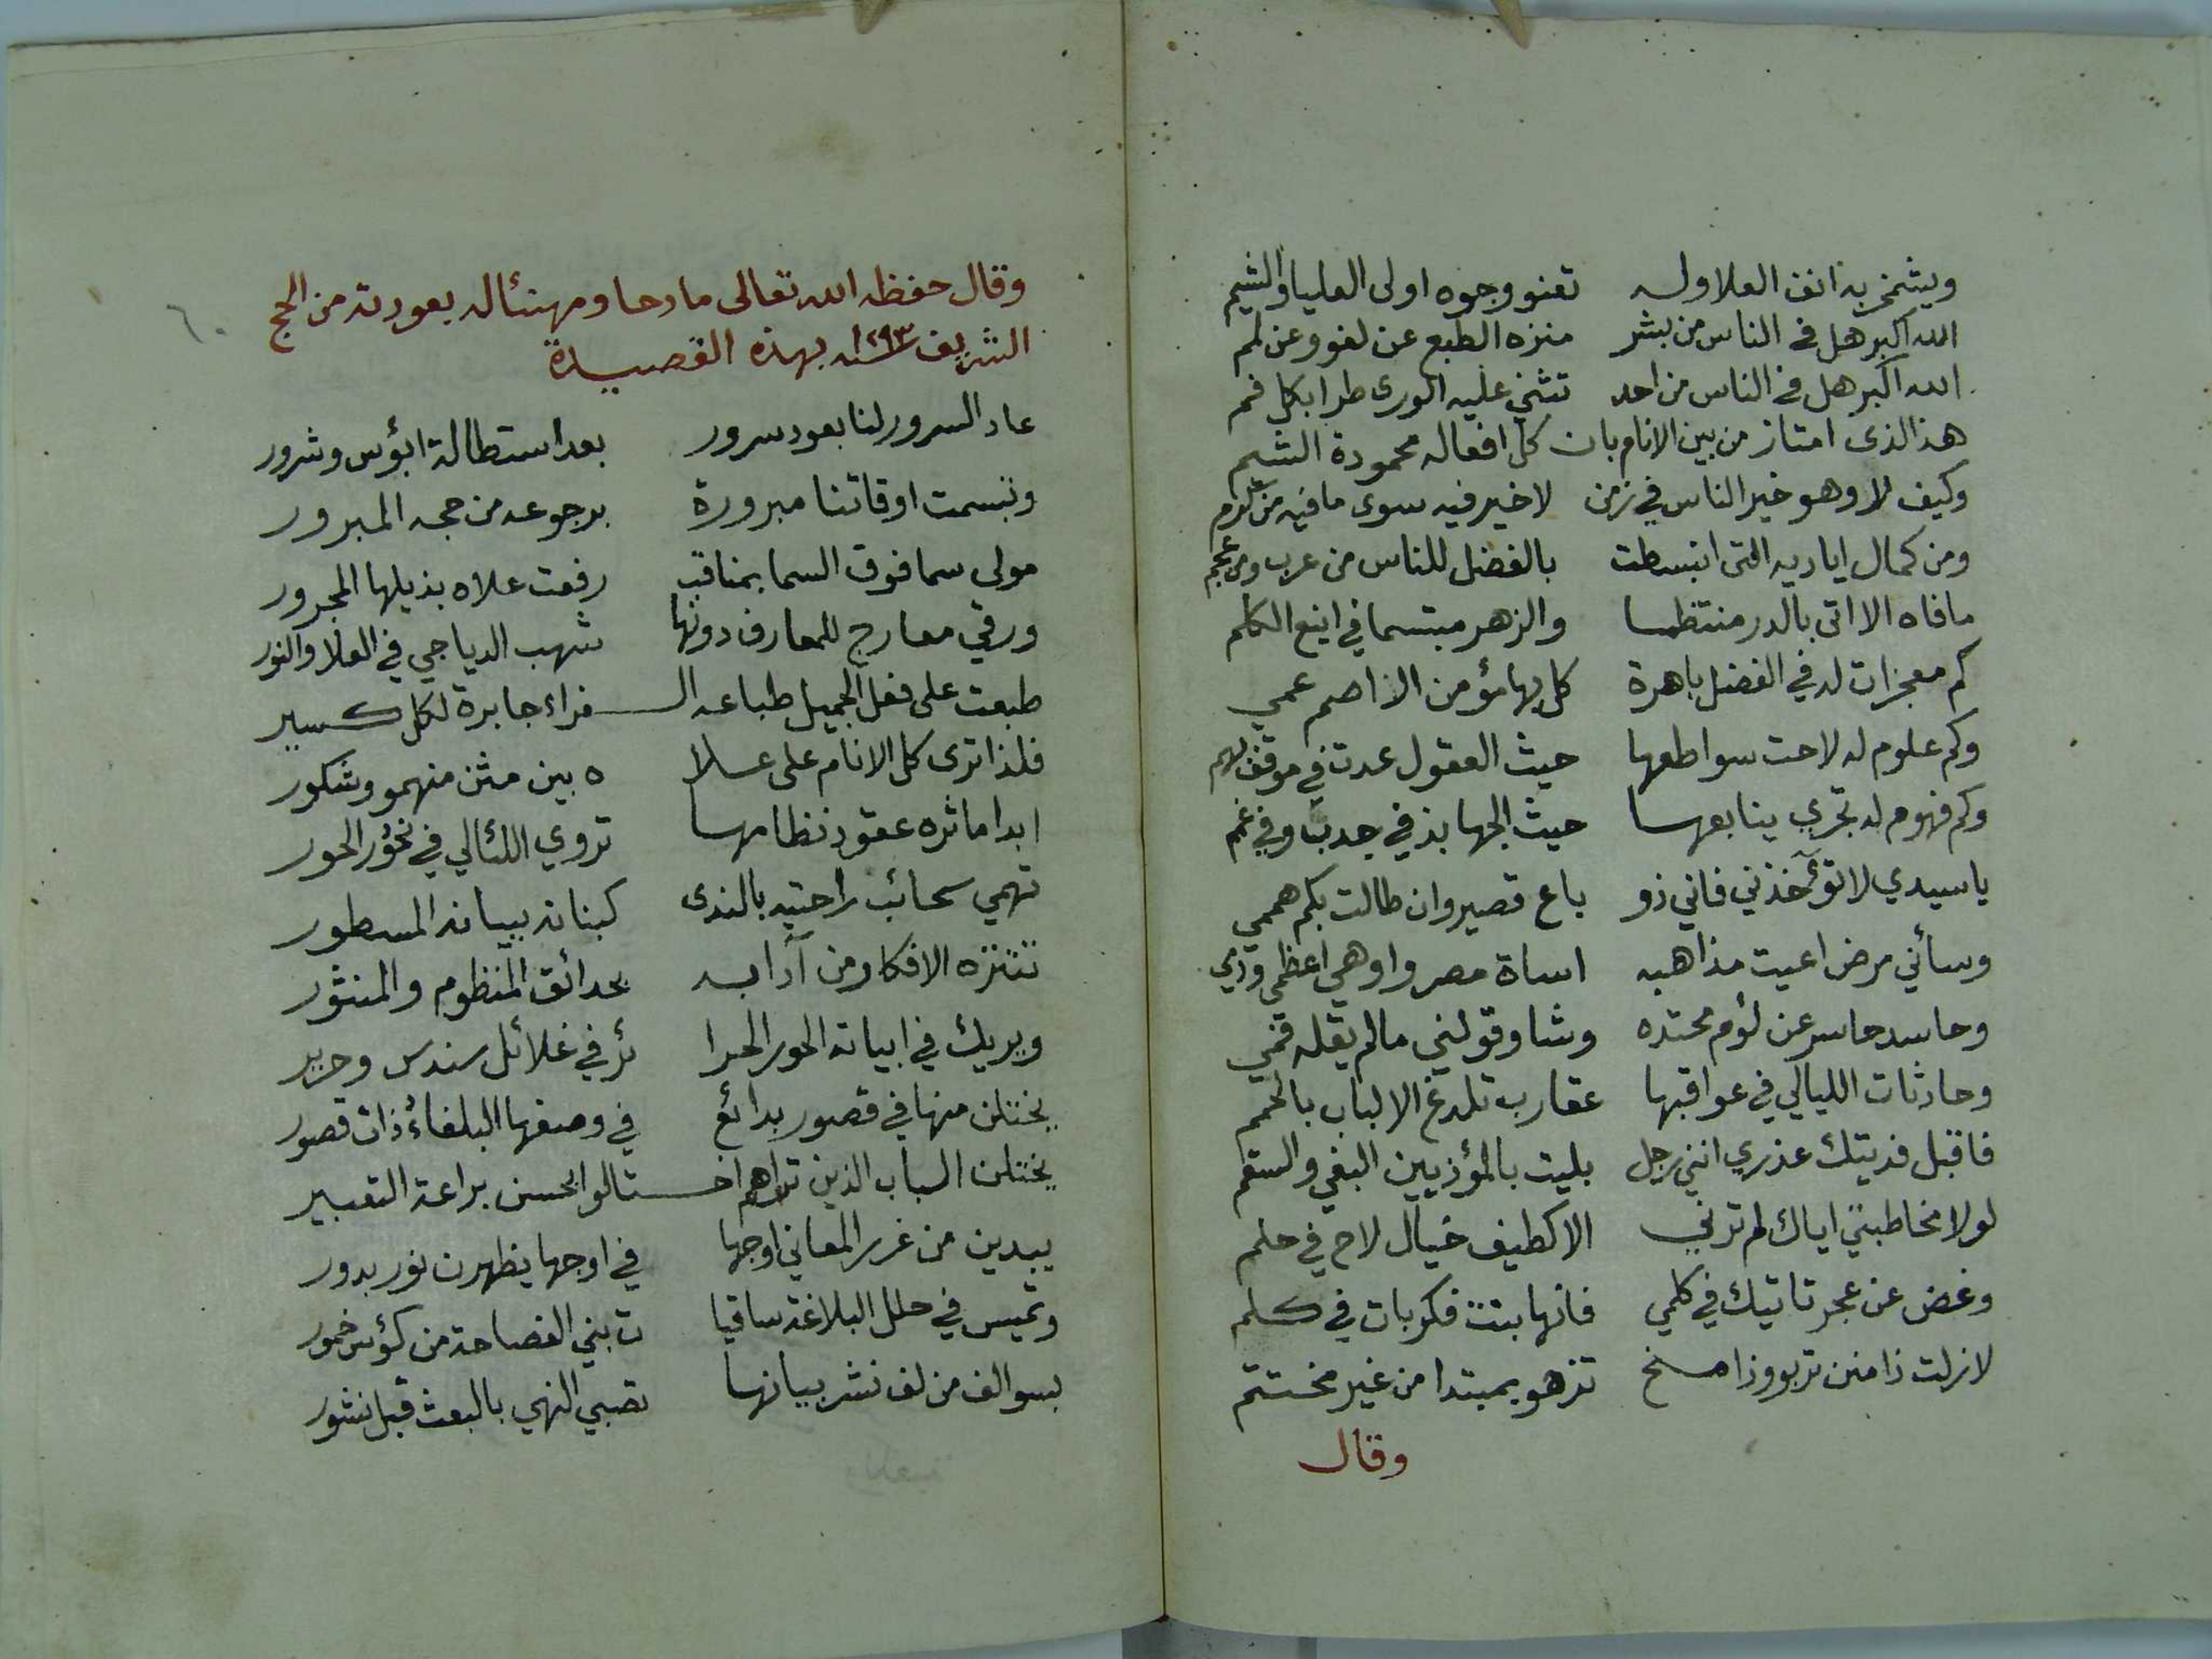 ويشمخن به انف العلا وله تعنو وجوه اولى العليا والشيم
الله اكبر هل في الناس من بشر منزه الطبع عن لغو وعن لمم
الله اكبر هل في الناس من احد تثني عليه الورى طرا بكل فم
هذا الذى امتاز من بين الانام بان كل افعاله محمودة الشيم
وكيف لا وهو خير الناس في زمن لا خير فيه سوى ما فيه من كرم
ومن كمال اياديه التى انبسطت بالفضل للناس من عرب ومن عجم
ما فاه الا اتى بالدر منتظما والزهر مبتسما في اينع الكلم
كم معجزات له في الفضل باهرة كل بها مؤمن الا اصم عمي
وكم علوم له لاحت سواطعها حيث العقول عدت في موقف لهم
وكم فهوم له تجري ينابعها حيث الجهابذ في جدب وفي غمم
يا سيدي لا تؤآخذني فاني ذو باع قصير وان طالت بكم هممي
وسأني مرض اعيت مذاهبه اساة مصر واوهي اعظمي ودي
وحاسد حاسر عن لؤم محتده وشا وقولني مالم يقله فمي
وحادثات الليالي في عواقبها عقارب تلدغ الالباب بالحمم
فاقبل فديتك عذري انني رجل بليت بالمؤذيين البغي والسقم
لولا مخاطبتي اياك لم ترني الا كطيف خيال لاح في حلم
وغض عن عجر تاتيك في كلمي فانها بنت فكر بات في كلم
لازلت ذا منن تربو وذا منح تزهو بمبتدا من غير مختتم
وقال
٦٠
وقال حفظه الله تعالى مادحا ومهنئا له بعودته من الحج
الشريف ١٢٩٣ سنه بهذه القصيدة
عاد السرور لنا بعود سرور بعد استطالة ابؤس وشرور
وتبسمت اوقاتنا مبرورة برجوعه من حجه المبرور
مولى سما فوق السما بمناقب رفعت علاه بذيلها المجرور
ورقي معارج للمعارف دونها شهب الدياجي في العلا والنور
طبعت على فعل الجميل طباعه الـ ـغراء جابرة لكل كسير
فلذا ترى كل الانام على علا ه بين مثن منهمو وشكور
ابدا ماثره عقود نظامها تروي اللئالي في نحور الحور
تهمي سحائب راحتيه بالندى كبنانه ببيانه المسطور
تتنزه الافكار من آدابه بحدائق المنظوم والمنثور
ويريك في ابياته الحور الحرا ئر في غلائل سندس وحرير
يختلن منها في قصور بدائع في وصفها البلغاء ذات قصور
يختلن الباب الذين تراهم اخـ ـتالوا بحسن براعة التعبير
يبدين من غرر المعاني اوجها في اوجها يظهرن نور بدور
وتميس في حلل البلاغة ساقيا ت بني الفصاحة من كؤس خمور
بسوالف من لف نشر بيانها تصبي النهي بالبعث قبل نشور